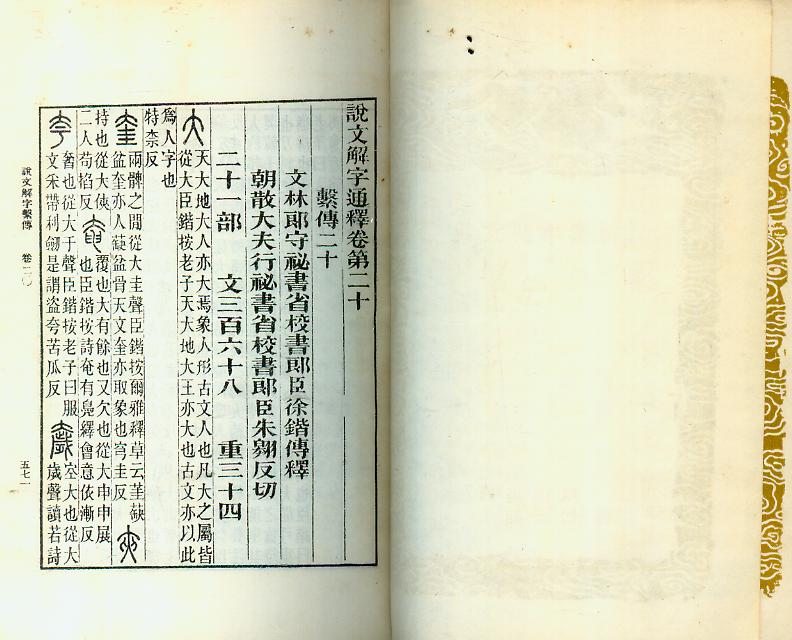 說文解字通釋卷第二十
繫傳二十
文林郎守祕書省校書郎臣徐鍇傳釋
朝散大夫行祕書省校書郎臣朱翱反切
二十一部 文三百六十八 重三十四
大 天大地大人亦大焉象人形古文人也凡大之屬皆
從大臣鍇按老子天大地大王亦大也古文亦以此
爲人字也
特柰反
奎 兩髀之閒從大圭聲臣鍇按爾雅釋草云茥蒛
盆奎亦人蒛盆骨天文奎亦取象也穹圭反 夾
持也從大俠
二人苟掐反 奄 覆也大有餘也又欠也從大申申展
也臣鍇按詩奄有鳧繹會意依漸反
夸 奢也從大于聲臣鍇按老子曰服
文采帶利劒是謂盜夸苦瓜反 奯 空大也從大
歲聲讀若詩
說文解字繫傳 卷二〇
五七一